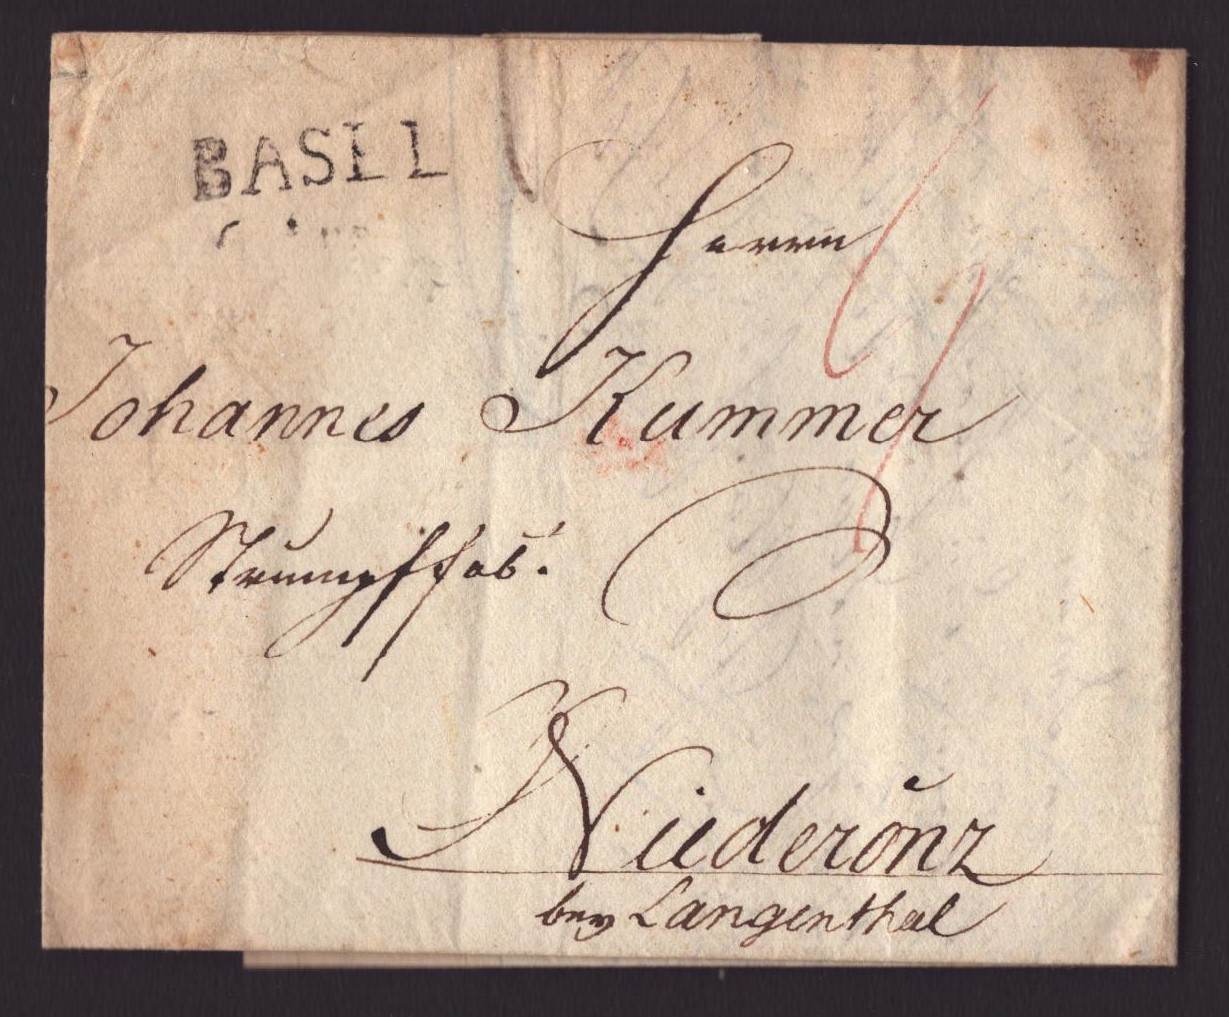 BASEL
Herrn
Johannes Kummer
Strumpffab.
Niederönz
bey Langenthal